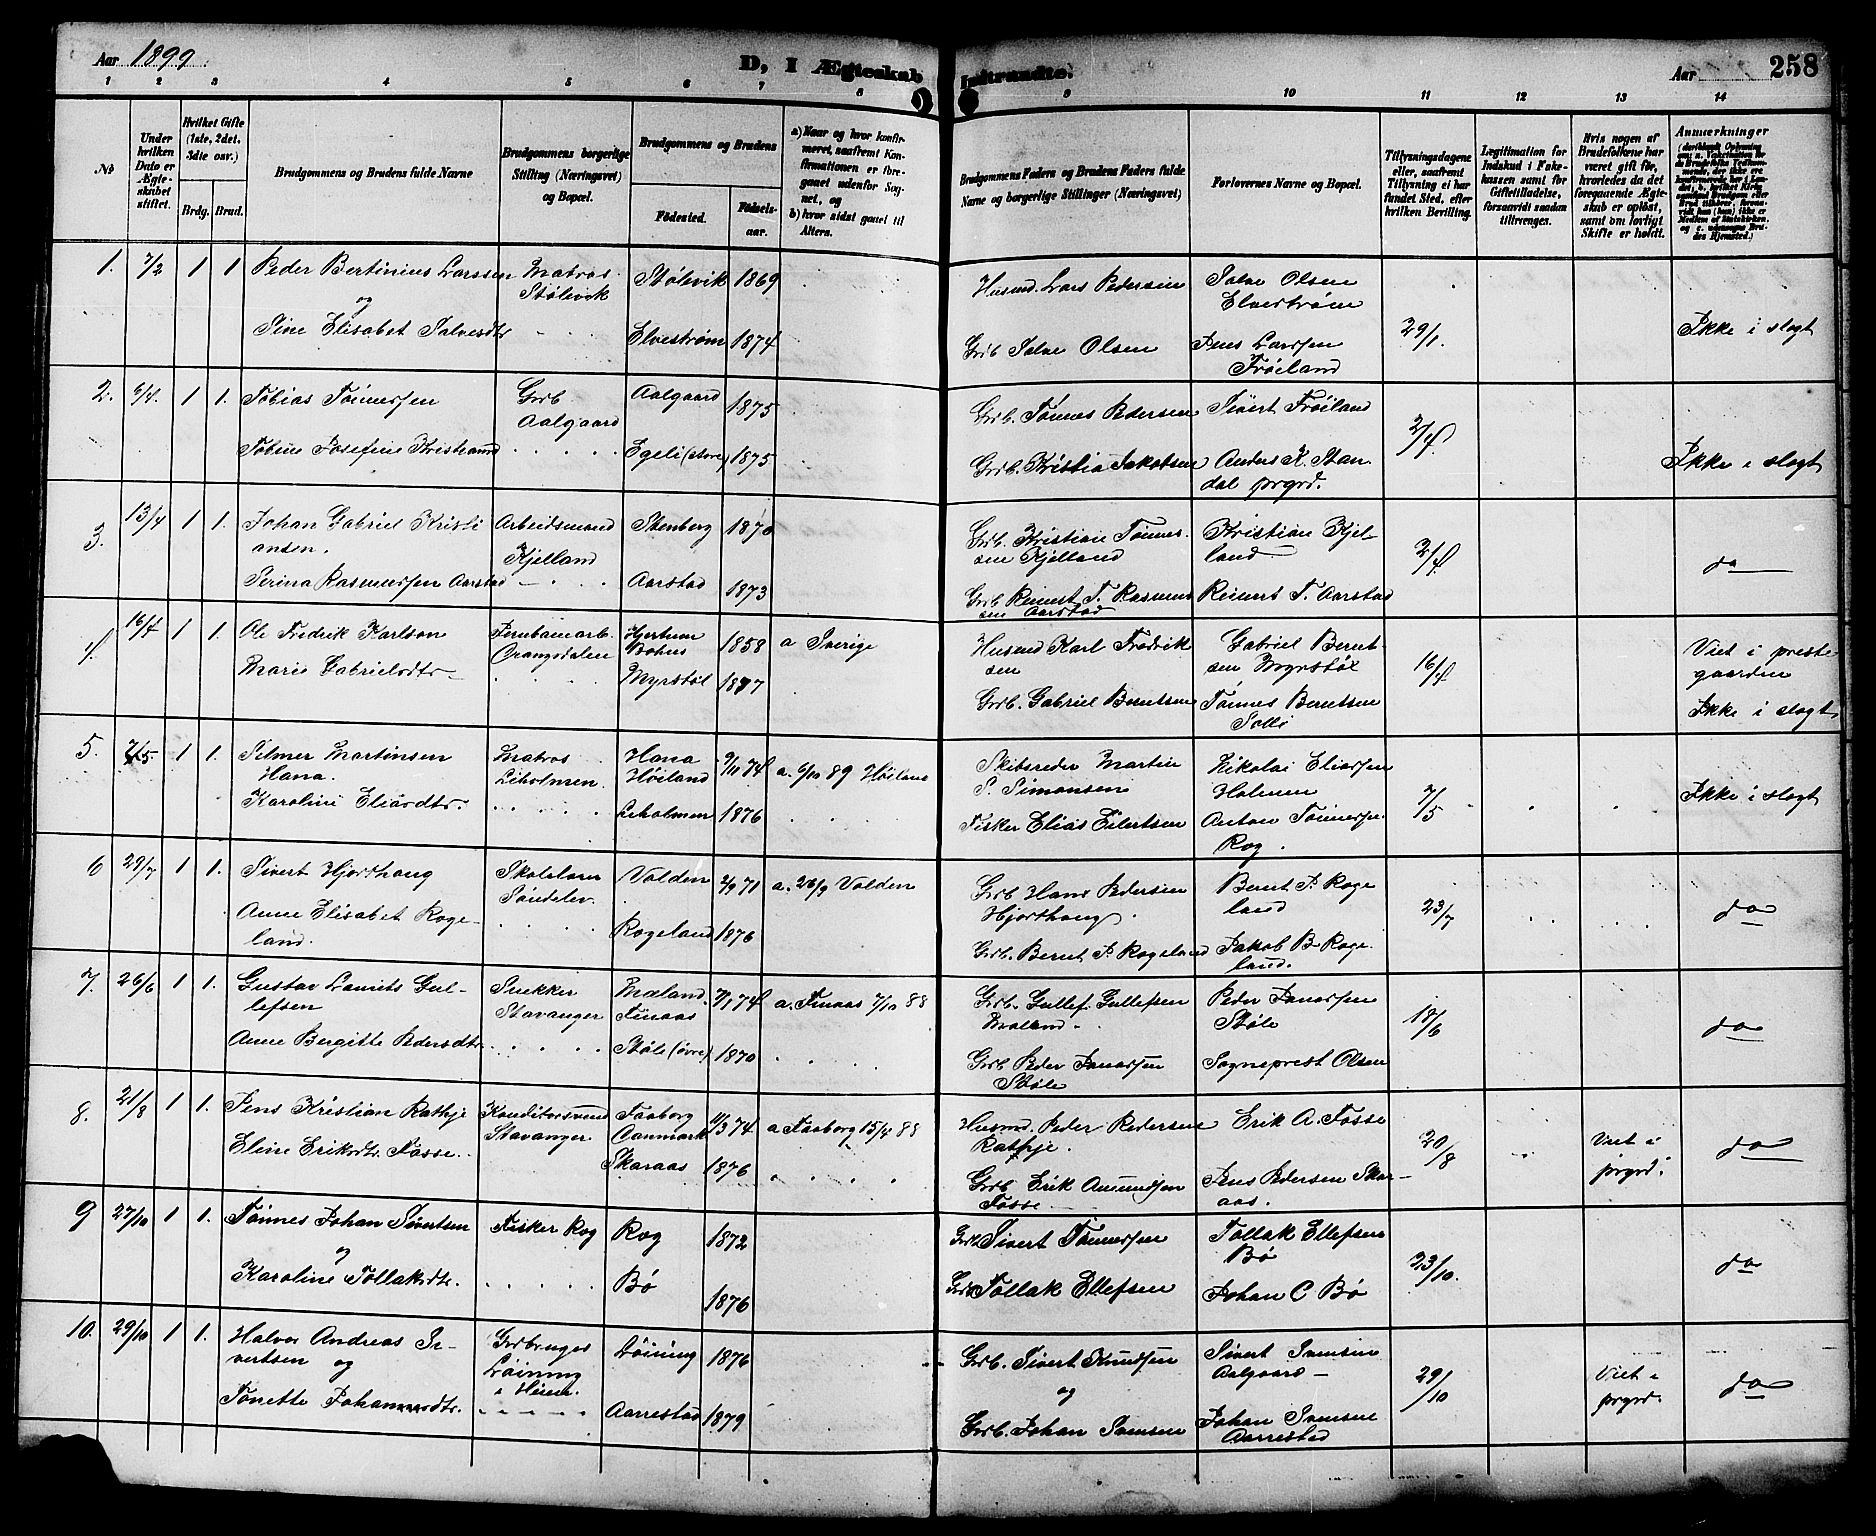 Aar 1899.
D, I Ægteskab Indtraadte.
Aar
258
1 2 3 4 5 6 7 8 9 10 11 12 13 14
No
Under hvilken Dato er Ægteskabet stiftet.
Hvilket Gifte (1ste, 2det, 3dte osv.)
Brdg. Brud.
Brudgommens og Brudens fulde Navne
Brudgommens borgerlige Stilling (Næringsvei) og Bopæl.
Brudgommens og Brudens
Fødested.
Fødselsaar.
a) Naar og hvor konfirmeret, saafremt Konfirmationen er foregaaet udenfor Sognet, og
b) hvor sidst gaaet til Alters.
Brudgommens Faders og Brudens Faders fulde Navne og borgerlige Stillinger (Næringsvei)
Forlovernes Navne og Bopæl.
Tillysningsdagene eller, saafremt Tillysning ei har fundet Sted, efter hvilken Bevilling.
Legitimation for Indskud i Enkekassen samt for Giftetilladelse, forsaavidt saadan tiltrænges.
Hvis nogen af Brudefolkene har været gift før, hvorledes da det foregaaende Ægteskab er opløst, samt om lovligt Skifte er holdt.
Anmærkninger
1. 7/2 1 1 Peder Bertinius Larssen Matros Stølevik Stølevik 1869
og
Sine Elisabet Salvesdtr Elvestrøm 1874
Husmd. Lars Pedersen Salve Olsen Elvestrøm
Grb Salve Olsen Jens Larssen Frøiland
29/1. Ikke i slegt
2. 6/4. 1 1. Tobias Tønnessen Grb Aalgaard Aalgaard 1875
Tobine Josefine Kristiansd Egeli (store) 1875
Grb. Tønnes Pedersen Sivert Frøiland
Grb. Kristia Jakobsen Anders K. Standal prgrd.
2/4. Ikke i slegt
3. 13/4 1 1. Johan Gabriel Kristiansen. Arbeidsmand Kjelland Stenberg 1870
Serina Rasmussen Aarstad Aarstad 1873
Grb. Kristian Tønnessen Kjelland Kristian Kjelland
Grb Reinert T. Rasmussen Aarstad Reinert T. Aarstad
2/4. do
4. 16/4 1 1. Ole Fredrik Karlson Jernbanearb. Orangsdalen Hjertum Bohus 1858 a Sverige
Marie Gabrielsdtr Myrstøl 1877
Husmd Karl Fredriksen Gabriel Berntsen Myrstøl
Grb. Gabriel Berntsen Tønnes Berntsen Solli
16/4 Viet i prestegaarden
Ikke i slegt
5. 7/5. 1 1. Selmer Martinsen Hana. Matros Leholmen. Hana Høiland 9/11 74 a. 6/10 89 Høiland
Karoline Eliasdtr. Leholmen 1876
Skibsreder Martin S. Simonsen Nikolai Eliassen Holmen
Fisker Elias Eilertsen Anton Tønnessen Rog.
7/5 Ikke i slegt
6 29/7 1 1. Sivert Hjorthaug Skolelærer Søndelev. Volden 2/9 71 a. 26/9 Volden
Anne Elisabet Rogeland. Rogeland 1876
Grb Hans Pedersen Hjorthaug. Bernt P. Rogeland
Grb. Bernt P. Rogeland Jakob B. Rogeland.
23/7 do
7. 26/6 1 1. Gustav Laurits Gullefsen Snekker Stavanger Mæland. Finaas 7/1 74 a. Finaas 7/10 88
Anne Bergitte Pedersdtr Støle (øvre) 1870
Grb. Gullef. Gullefsen Mæland Peder Jonassen Støle
Grb Peder Jonassen Støle Sogneprest Olsen
18/6 do
8. 21/8 1 1. Jens Kristian Rathje Konditorsvend Stavanger Faaborg Danmark 11/3 74 a Faaborg 15/4 88
Eline Eriksdtr. Fosse. Skaraas 1876
Husmd. Peder Pedersen Rathje. Erik A. Fosse
Grb. Erik Amundsen Fosse. Jens Pedersen Skaraas.
20/8 Viet i prgrd. do
9 27/10 1 1. Tønnes Johan Sivertsen Fisker Rog Rog 1872
og
Karoline Tollaksdtr. Bø 1876
Grb Sivert Tønnessen Tollak Ellefsen Bø
Grb Tollak Ellefsen Johan C Bø
23/10. do
10. 29/10 1 1. Halvor Andreas Sivertsen og Løining i Heien. Løining 1876
Tonette Johannesdtr. Aarrestad 1879
Grb. Sivert Knudsen Sivert Svensen Aalgaard
og
Grb. Johan Svensen Johan Svensen Aarrestad
29/10 Viet i prgrd. do